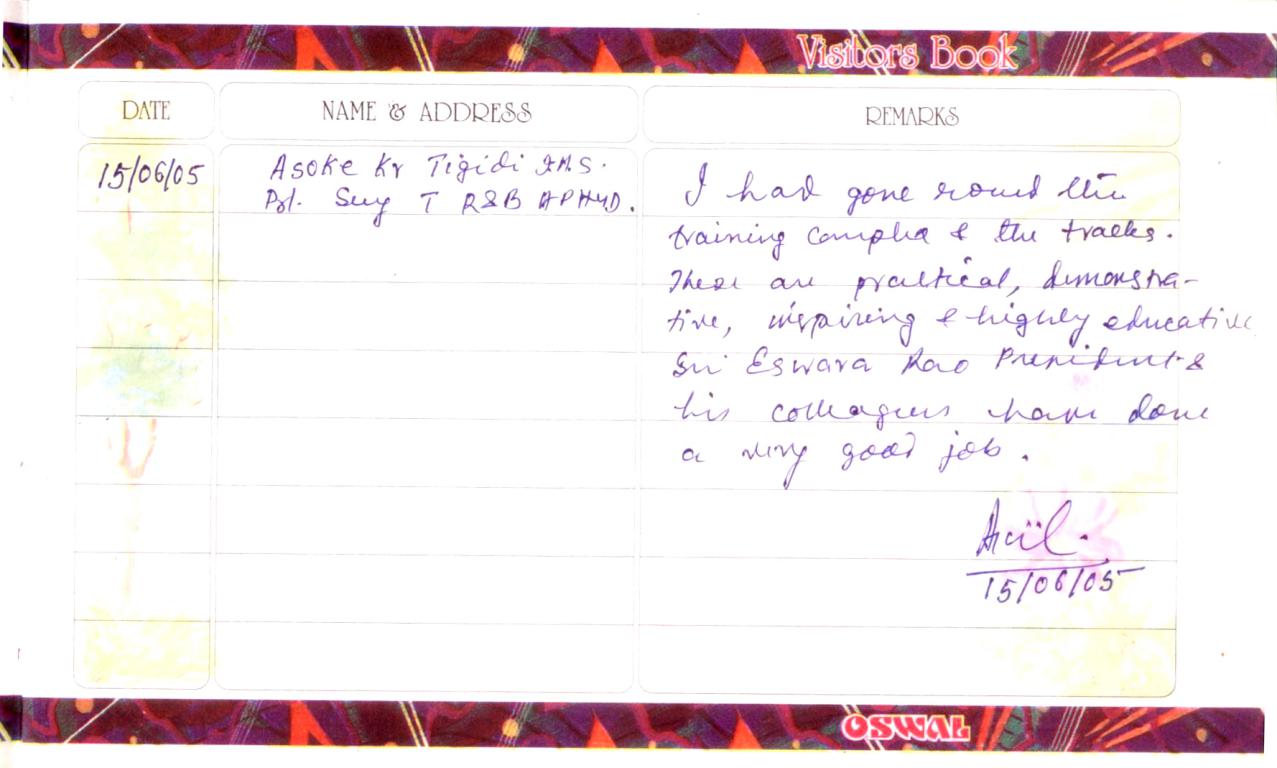 Visitors Book
DATE
NAME & ADDRESS
REMARKS
15/06/05
Asoke Kr Tigidi I.A.S.
Prl. Secy T R&B AP HYD.
I had gone round the
training complex & the tracks.
These are practical, demonstra-
tive, inspiring & highly educative
Sri Eswara Rao President &
his colleagues have done
a very good job.
15/06/05
OSWAL